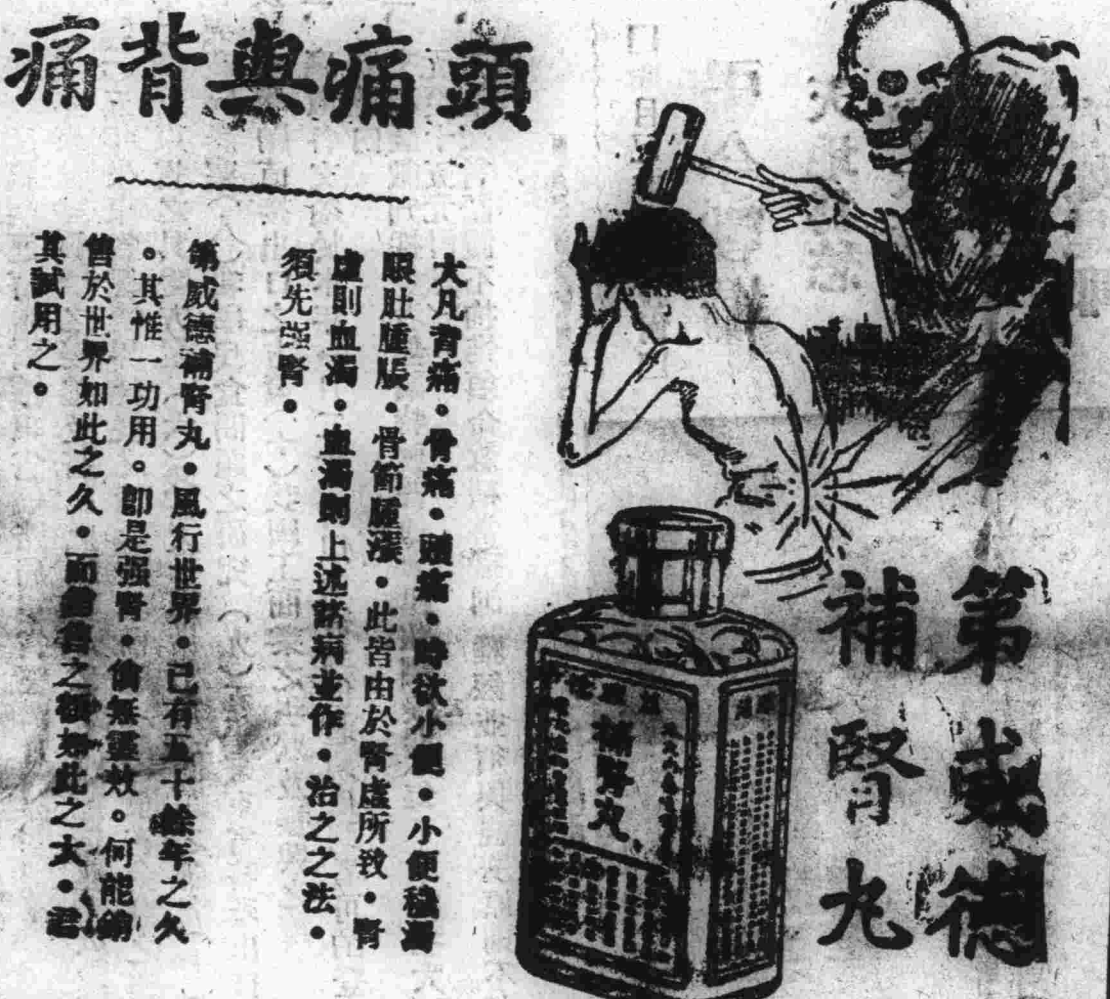 頭痛與背痛
大凡背痛．骨痛．頭痛．時欲小便．小便穢濁
眼肚腫脹．骨節腫漲．此皆由於腎虛所致．腎
虛則血濁．血濁則上述諸病並作．治之之法．
須先强腎．
第威德補腎丸．風行世界．已有五十餘年之久
。其惟一功用。即是强腎．倘無靈效。何能銷
售於世界如此之久．而銷售之額如此之大．君
其試用之．
第威德
補腎丸
補腎丸